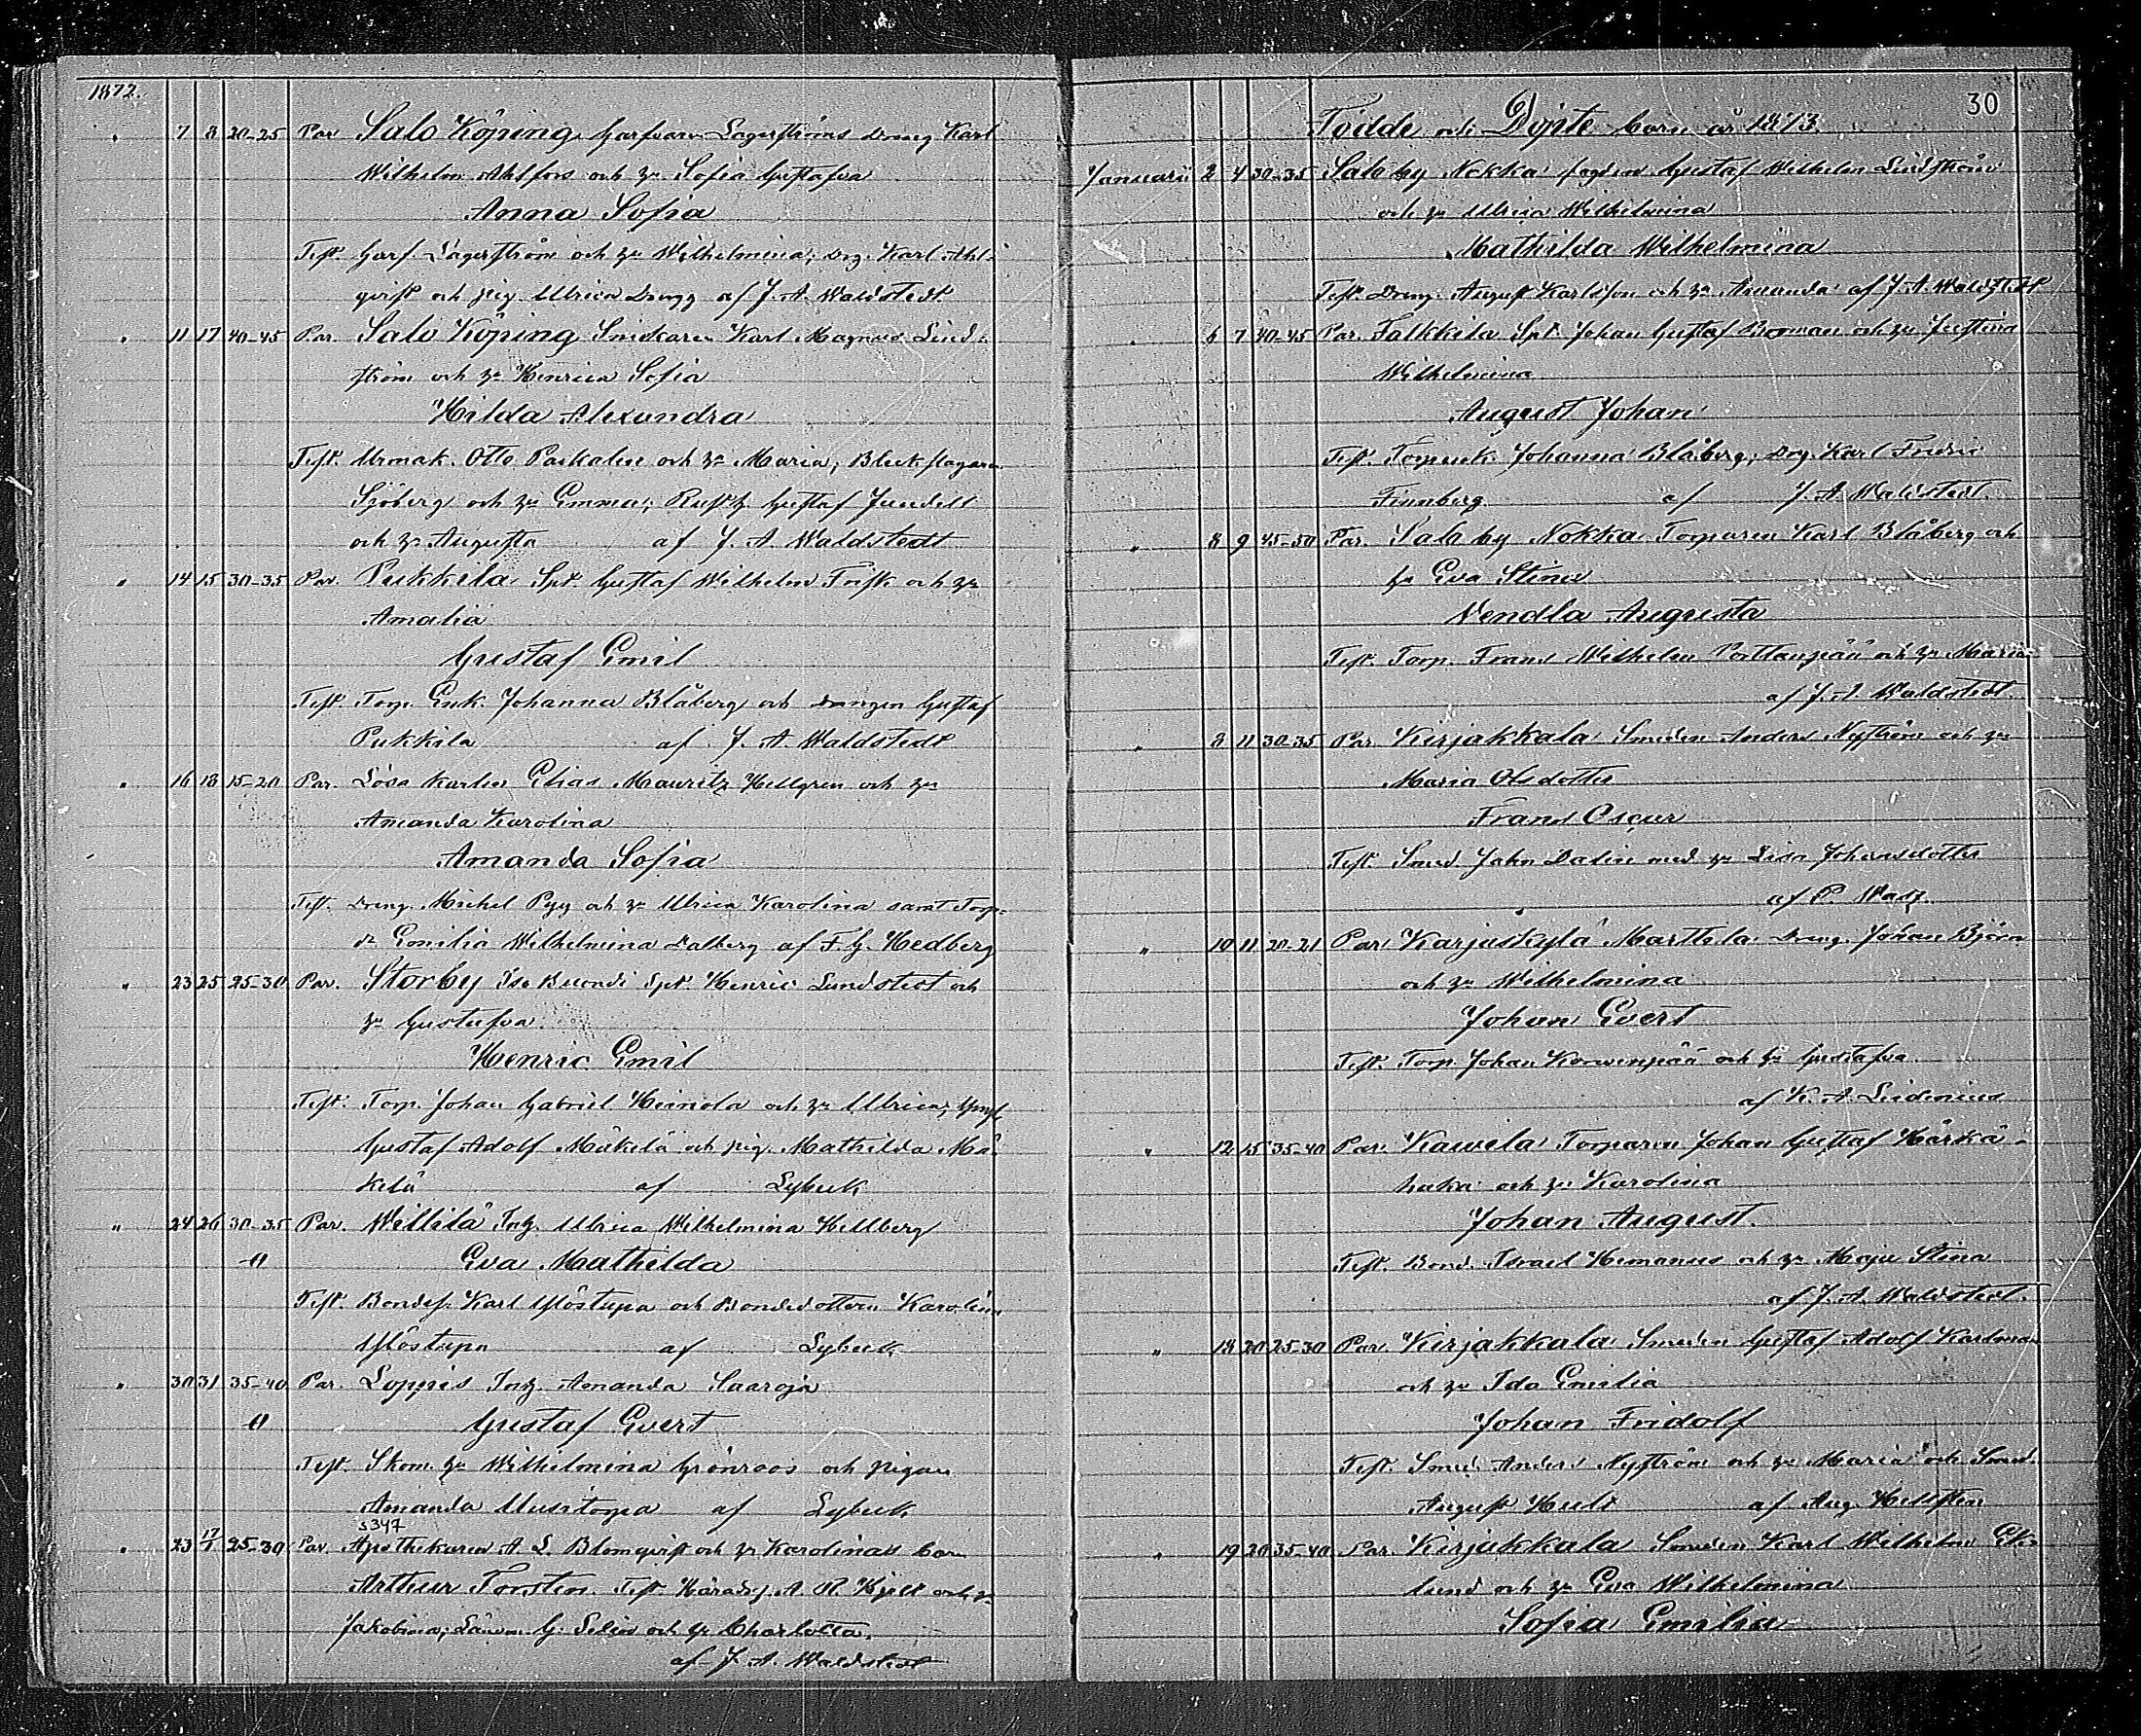 1872.
" 7 8 20-25 Par Salo Köping Garfvare Lagerströms dreng Karl
Wilhelm Ahlfors och hu Sofia Gustafva
Anna Sofia
Test. Garf. Lagerström och hu Wilhelmina, drg. Karl Ahl-
qvist och pig. Ulrica af J. A. Waldstedt
" 11 17 40-45 Par. Salo Köping Snickaren Karl Magnus Lind-
ström och hu Henrica Sofia
Hilda Alexandra
Test. Urmak. Otto och hu Maria, Bleckslagaren
Sjöberg och hu Emma, Gustaf
och hu Augusta af J. A. Waldstedt
" 14 15 30-35 Par. Pukkila Spt. Gustaf Wilhelm Forsk och hu
Amalia
Gustaf Emil
Test. Torp. Enk. Johanna Blåberg och drengen Gustaf
Pukkila af J. A. Waldstedt
" 16 18 15-20 Par. Lösa karlen Elias Mauritz Hellgren och hu
Amanda Karolina
Amanda Sofia
Test. Dreng. Michel och hu Ulrica Karolina samt Torp.
dr Emilia Wilhelmina Dalberg af F. G. Hedberg
" 23 25 25-30 Par. Storby Spt. Henric Lundstedt och
hu Gustafva
Henric Emil
Test. Torp. Johan Gabriel Heinola och hu Ulrica, Yngl
Gustaf Adolf Mäkelä och pig. Mathilda Mä-
kelä af Lybeck
" 24 26 30-35 Par. Willilä Inh. Ulrica Wilhelmina Hellberg
Eva Mathilda
Test. Bondes. Karl Ylöstupa och Bondedottern Karolina
Ylöstupa af Lybeck
" 30 31 35-40 Par. Loppis Inh. Amanda Saaroja
Gustaf Evert
Test. Skom. hu Wilhelmina Grönroos och pigan
Amanda Uusitorpa af Lybeck
s 347
" 23 17/1 25-30 Par. Apothekaren A. L. Blomqvist och hu Karolinas barn
Arthur Torsten. Test. Häradsh. A. R. Hjelt och hu
Jakobina, Länsm. G. Selin och hu Charlotta.
af J. A. Waldstedt
30
Födde och Döpte barn år 1873.
Januarii 2 4 30-35 Salo by Nokka fogden Gustaf Wilhelm Lindström
och hu Ulrica Wilhelmina
Mathilda Wilhelmina
Test. Dreng. August Karlsson och hu Amanda af J. A. Waldstedt
" 6 7 40-45 Par. Falkkila Spt. Johan Gustaf Boman och hu Justina
Wilhelmina
August Johan
Test. Torpenk. Johanna Blåberg, drg. Karl Fredric
Finnberg af J. A. Waldstedt
" 8 9 45-50 Par. Salo by Nokka Torparen Karl Blåberg och
hu Eva Stina
Vendla Augusta
Test. Torp. Frans Wilhelm Porttanpää och hu Maria
af J. A. Waldstedt
" 8 11 30-35 Par. Kirjakkala Smeden Anders Nyström och hu
Maria Olsdotter
Frans Oscar
Test. Smed. Jahn Dalin med hu Lisa Johansdotter
af P.
" 10 11 20-21 Par. Karjaskylä Marttila Dreng. Johan Björn
och hu Wilhelmina
Johan Evert
Test. Torp. Johan Korvenpää och hu Gustafva
af K. A. Lindenius
" 12 15 35-40 Par. Kawila Torparen Johan Gustaf Härkä-
haka och hu Karolina
Johan August.
Test. Bond. Israel Hemanus och hu Maja Stina
af J. A. Waldstedt.
" 18 20 25-30 Par. Kirjakkala Smeden Gustaf Adolf Karlman
och hu Ida Emilia
Johan Fridolf
Test. Smed. Anders Nyström och hu Maria och Smed.
August Hult af Aug. Hellsten
" 19 20 35-40 Par. Kirjakkala Smeden Karl Wilhelm Ek-
lund och hu Eva Wilhelmina
Sofia Emilia